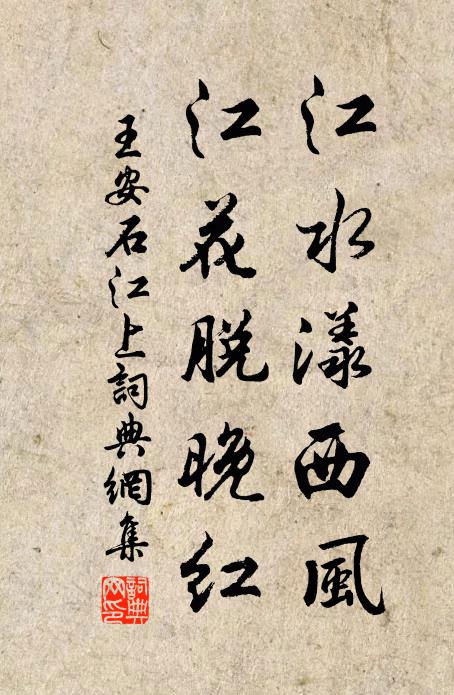 江水漾西風
江花脫晚紅
王安石江上詞典網集
詞典網印